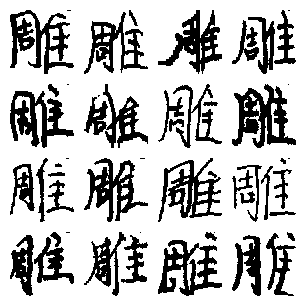 雕雕雕雕
雕雕雕雕
雕雕雕雕
雕雕雕雕